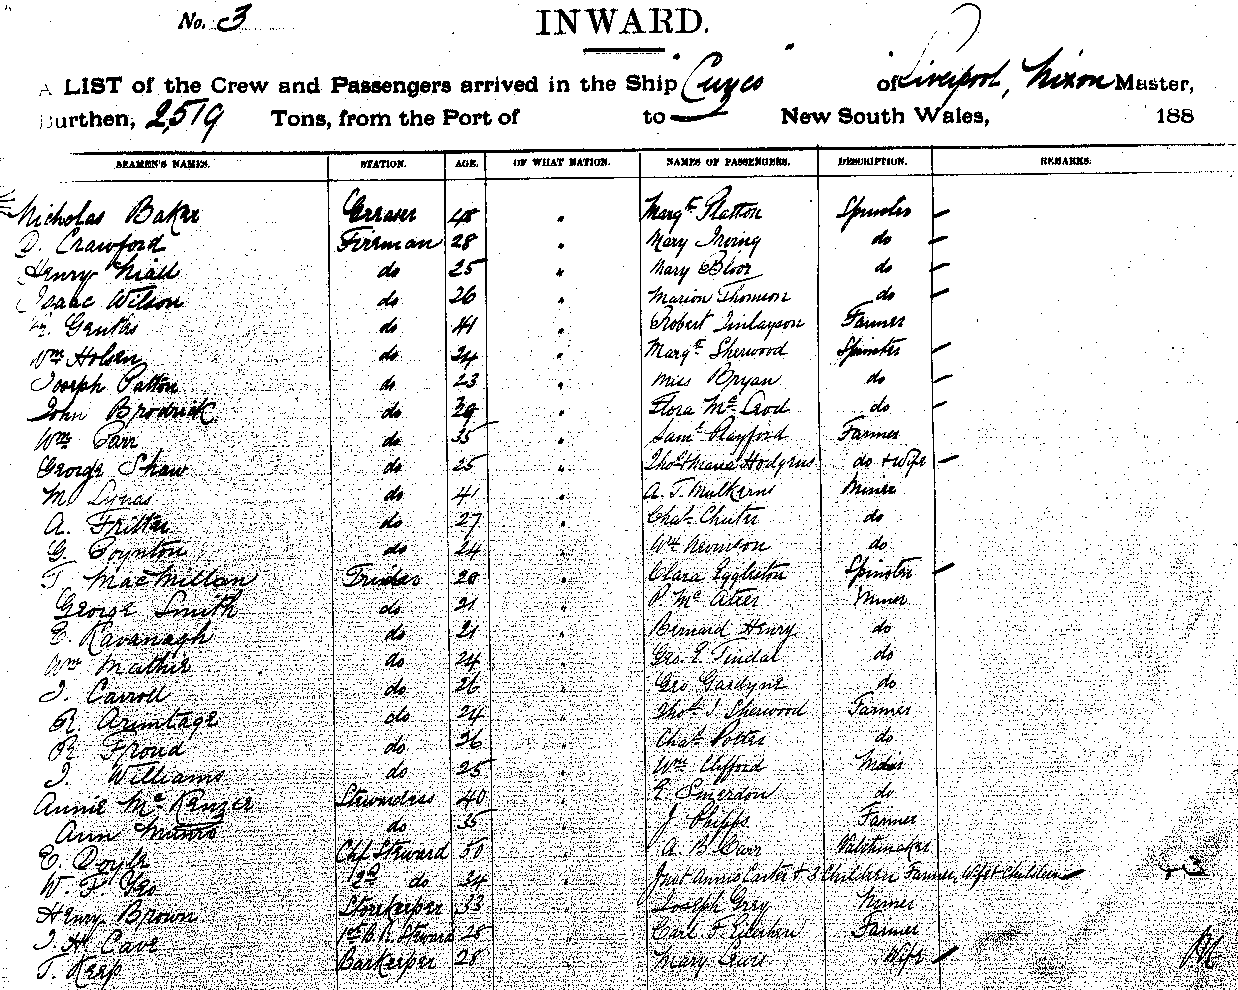 No. 3
INWARD.
A LIST of the Crew and Passengers arrived in the Ship "Cuzco" of Liverpool, Nixon Master,
Burthen, 2,519 Tons, from the Port of to New South Wales, 188
SEAMEN'S NAMES. STATION. AGE. OF WHAT NATION. NAMES OF PASSENGERS. DESCRIPTION. REMARKS.
Nicholas Baker Greaser 48 " Margt Platton Spinster
D. Crawford Fireman 28 " Mary Irving do
Henry Niall do 25 " Mary Bloor do
Isaac Wilson do 26 " Marion Thomson do
do 41 " Robert Finlayson Farmer
Wm Holsen do 24 " Margt Sherwood Spinster
Joseph Patton do 23 " Miss Bryan do
John Brodrick do 29 " Flora McLeod do
Wm Parr do 35 " Saml Playford Farmer
George Shaw do 25 " Thos & Maria Hodgens do & Wife
M. Lynas do 41 " A. T. Mulkerns Miner
A. Fritter do 27 " Chas Chuter do
G. Poynton do 24 " Wm Nevinson do
T. MacMillan Trimmer 20 " Clara Eggleston Spinster
George Smith do 21 " P. McAteer Miner
E. Kavanagh do 21 " Bernard Henry do
Wm Mathie do 24 " Geo. E. Tindal do
J. Carroll do 26 " Geo Gardyne do
R. Armitage do 24 " Thos J. Sherwood Farmer
R. Froud do 36 " Chas Potter do
J. Williams do 25 " Wm Clifford
Annie McKenzer Stewardess 40 " E. Smerdon do
Ann Munro do 35 " J. Phipps Farmer
E. Doyle Chf Steward 50 " A. B. Carr Watchmaker
W. F. 2nd do 24 " Annie Carter & 3 Children Farmer, Wife & Children
Henry Brown Storekeeper 33 " Joseph Grey Miner
J. H. Cave Steward 28 " Carl F. Farmer
T. Keep Barkeeper 28 " Mary Wife